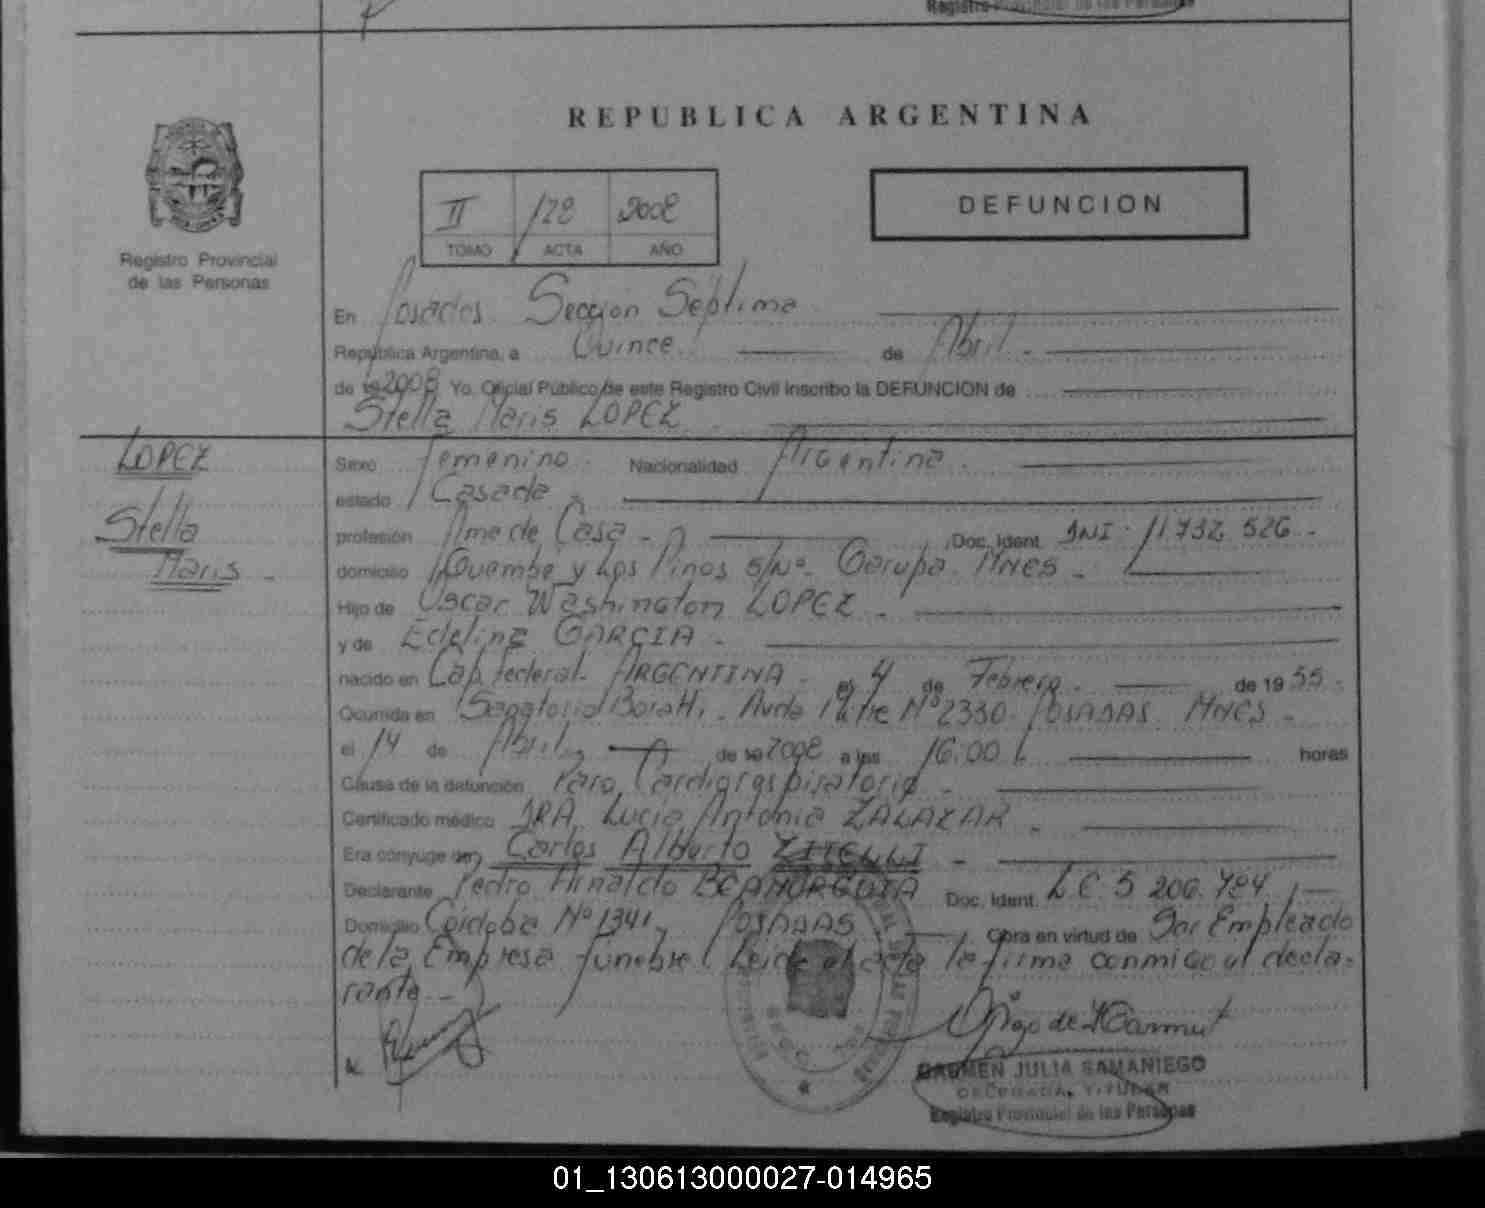 Registro Provincial de las Personas
REPUBLICA ARGENTINA
II /28 2008
TOMO ACTA AÑO
DEFUNCION
Registro Provincial
de las Personas
En Posadas Sección Séptima
República Argentina, a Quince de Abril
de 19 2008 Yo, Oficial Público de este Registro Civil inscribo la DEFUNCION de
Stella Maris LOPEZ
LOPEZ
Stella
Maris -
Sexo femenino Nacionalidad Argentina
estado Casada
profesión Ama de Casa - Doc. Ident. DNI 11.732.526 -
domicilio y Los Pinos S/Nº Garupa MNES -
Hijo de Oscar Washington LOPEZ -
y de Edelina GARCIA -
nacido en Cap. federal ARGENTINA - el 4 de Febrero de 1955 -
Ocurrida en Sanatorio Boratti, Avda Mitre Nº 2330 POSADAS MNES -
el 14 de Abril de 19 2008 a las 16:00 horas
Causa de la defunción Paro Cardiorespiratorio -
Certificado médico DRA. Lucia Antonia ZALAZAR -
Era cónyuge de Carlos Alberto ZITELLI -
Declarante Pedro Arnaldo Doc. Ident. L.E 5.206.784
Domicilio Córdoba Nº 1341, POSADAS Obra en virtud de Ser Empleado
de la Empresa fúnebre. Leida el acta la firma conmigo el decla-
rante -
CARMEN JULIA SAMANIEGO
DELEGADA TITULAR
Registro Provincial de las Personas
01_130613000027-014965